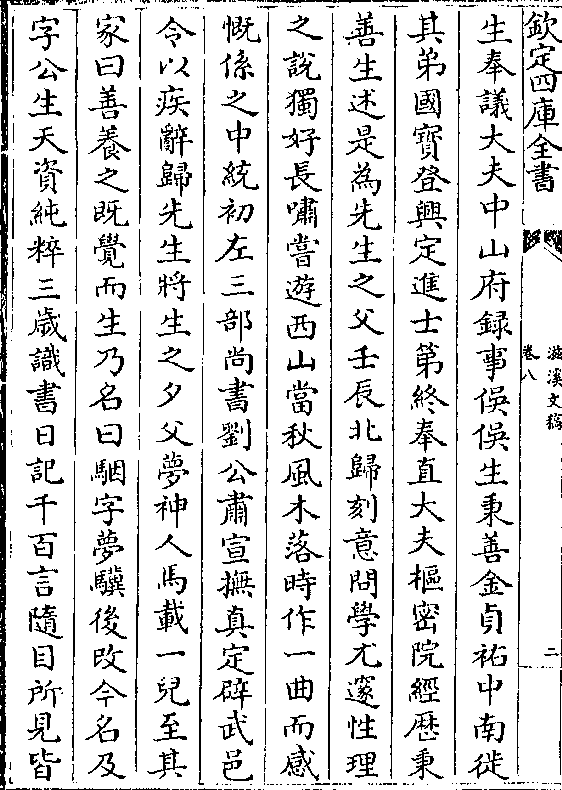 欽定四庫全書
滋溪文稿
卷八
二
生奉議大夫中山府録事俁俁生秉善金貞祐中南徙
其弟國寳登興定進士第終奉直大夫樞密院經歴秉
善生述是為先生之父壬辰北歸刻意問學尤邃性理
之說獨好長嘯嘗遊西山當秋風木落時作一曲而感
慨係之中統初左三部尚書劉公肅宣撫真定辟武邑
令以疾辭歸先生將生之夕父夢神人馬載一兒至其
家曰善養之既覺而生乃名曰駰字夢驥後改今名及
字公生天資純粹三歲識書日記千百言隨目所見皆